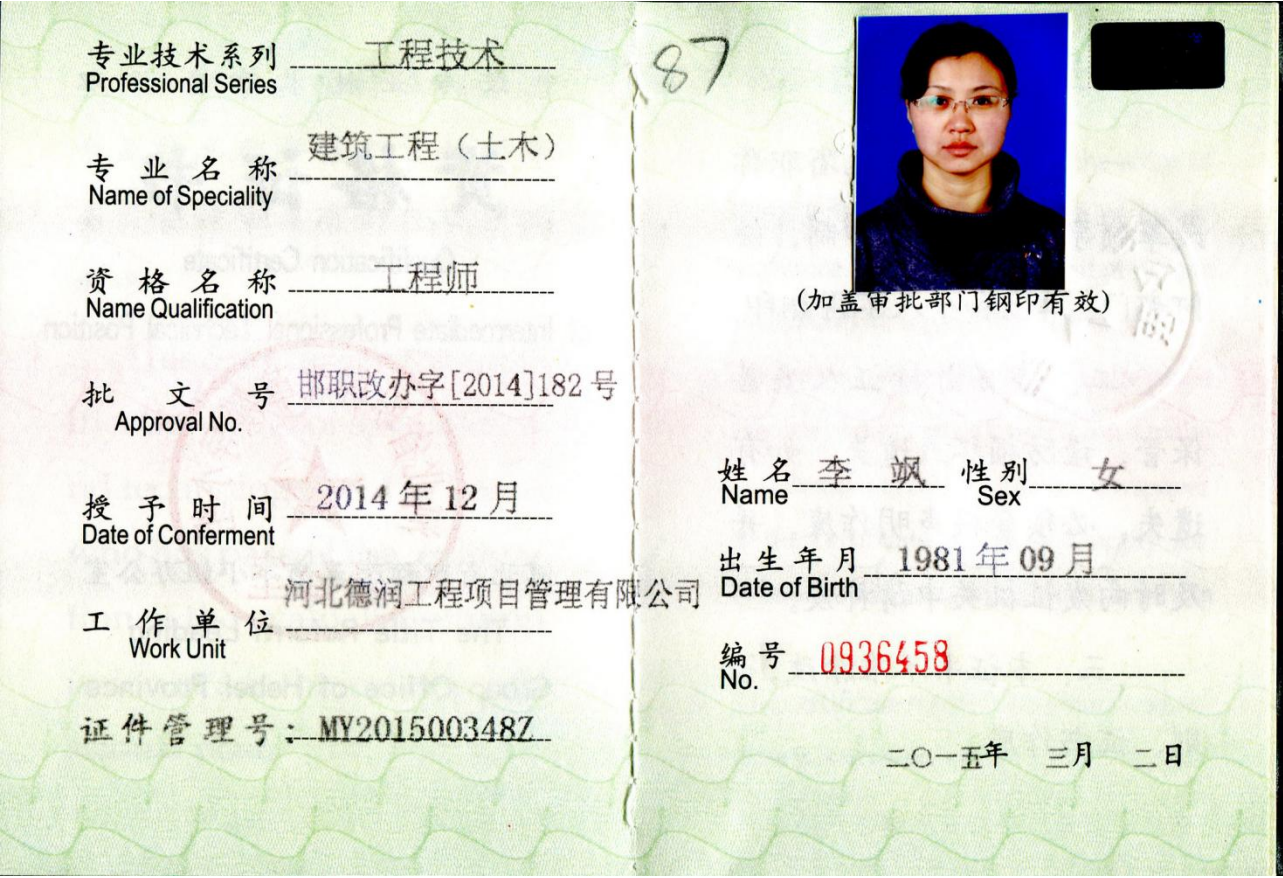 专业技术系列 工程技术
Professional Series
专业名称 建筑工程（土木）
Name of Speciality
资格名称 工程师
Name Qualification
批文号 邯职改办字[2014]182号
Approval No.
授予时间 2014年12月
Date of Conferment
工作单位 河北德润工程项目管理有限公司
Work Unit
证件管理号：MY201500348Z
87
(加盖审批部门钢印有效)
姓名 李飒 性别 女
Name Sex
出生年月 1981年09月
Date of Birth
编号 0936458
No.
二〇一五年 三月 二日